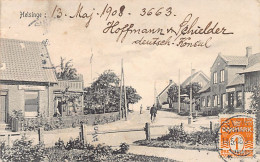 Helsinge.
13. Maj - 1908 - 3663.
Hoffmann v. Schielder
deutsch. Konsul
DANMARK